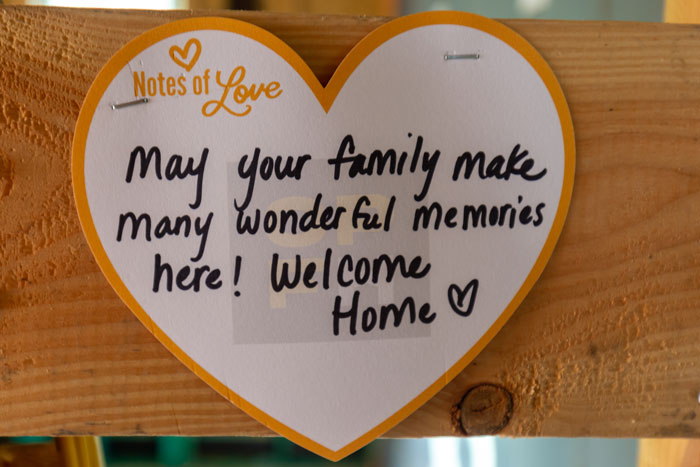 Notes of Love
May your family make
many wonderful memories
here! Welcome
Home